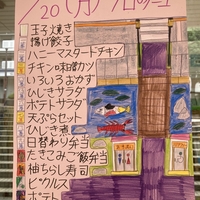 /20(月)
玉子焼き
揚げ餃子
ハニーマスタードチキン
チキンの味噌カツ
いろいろおかず
ひじきサラダ
ポテトサラダ
天ぷらセット
ひじき煮
日替わり弁当
たきこみご飯弁当
柚ちらし寿司
ピクルス
ポテト